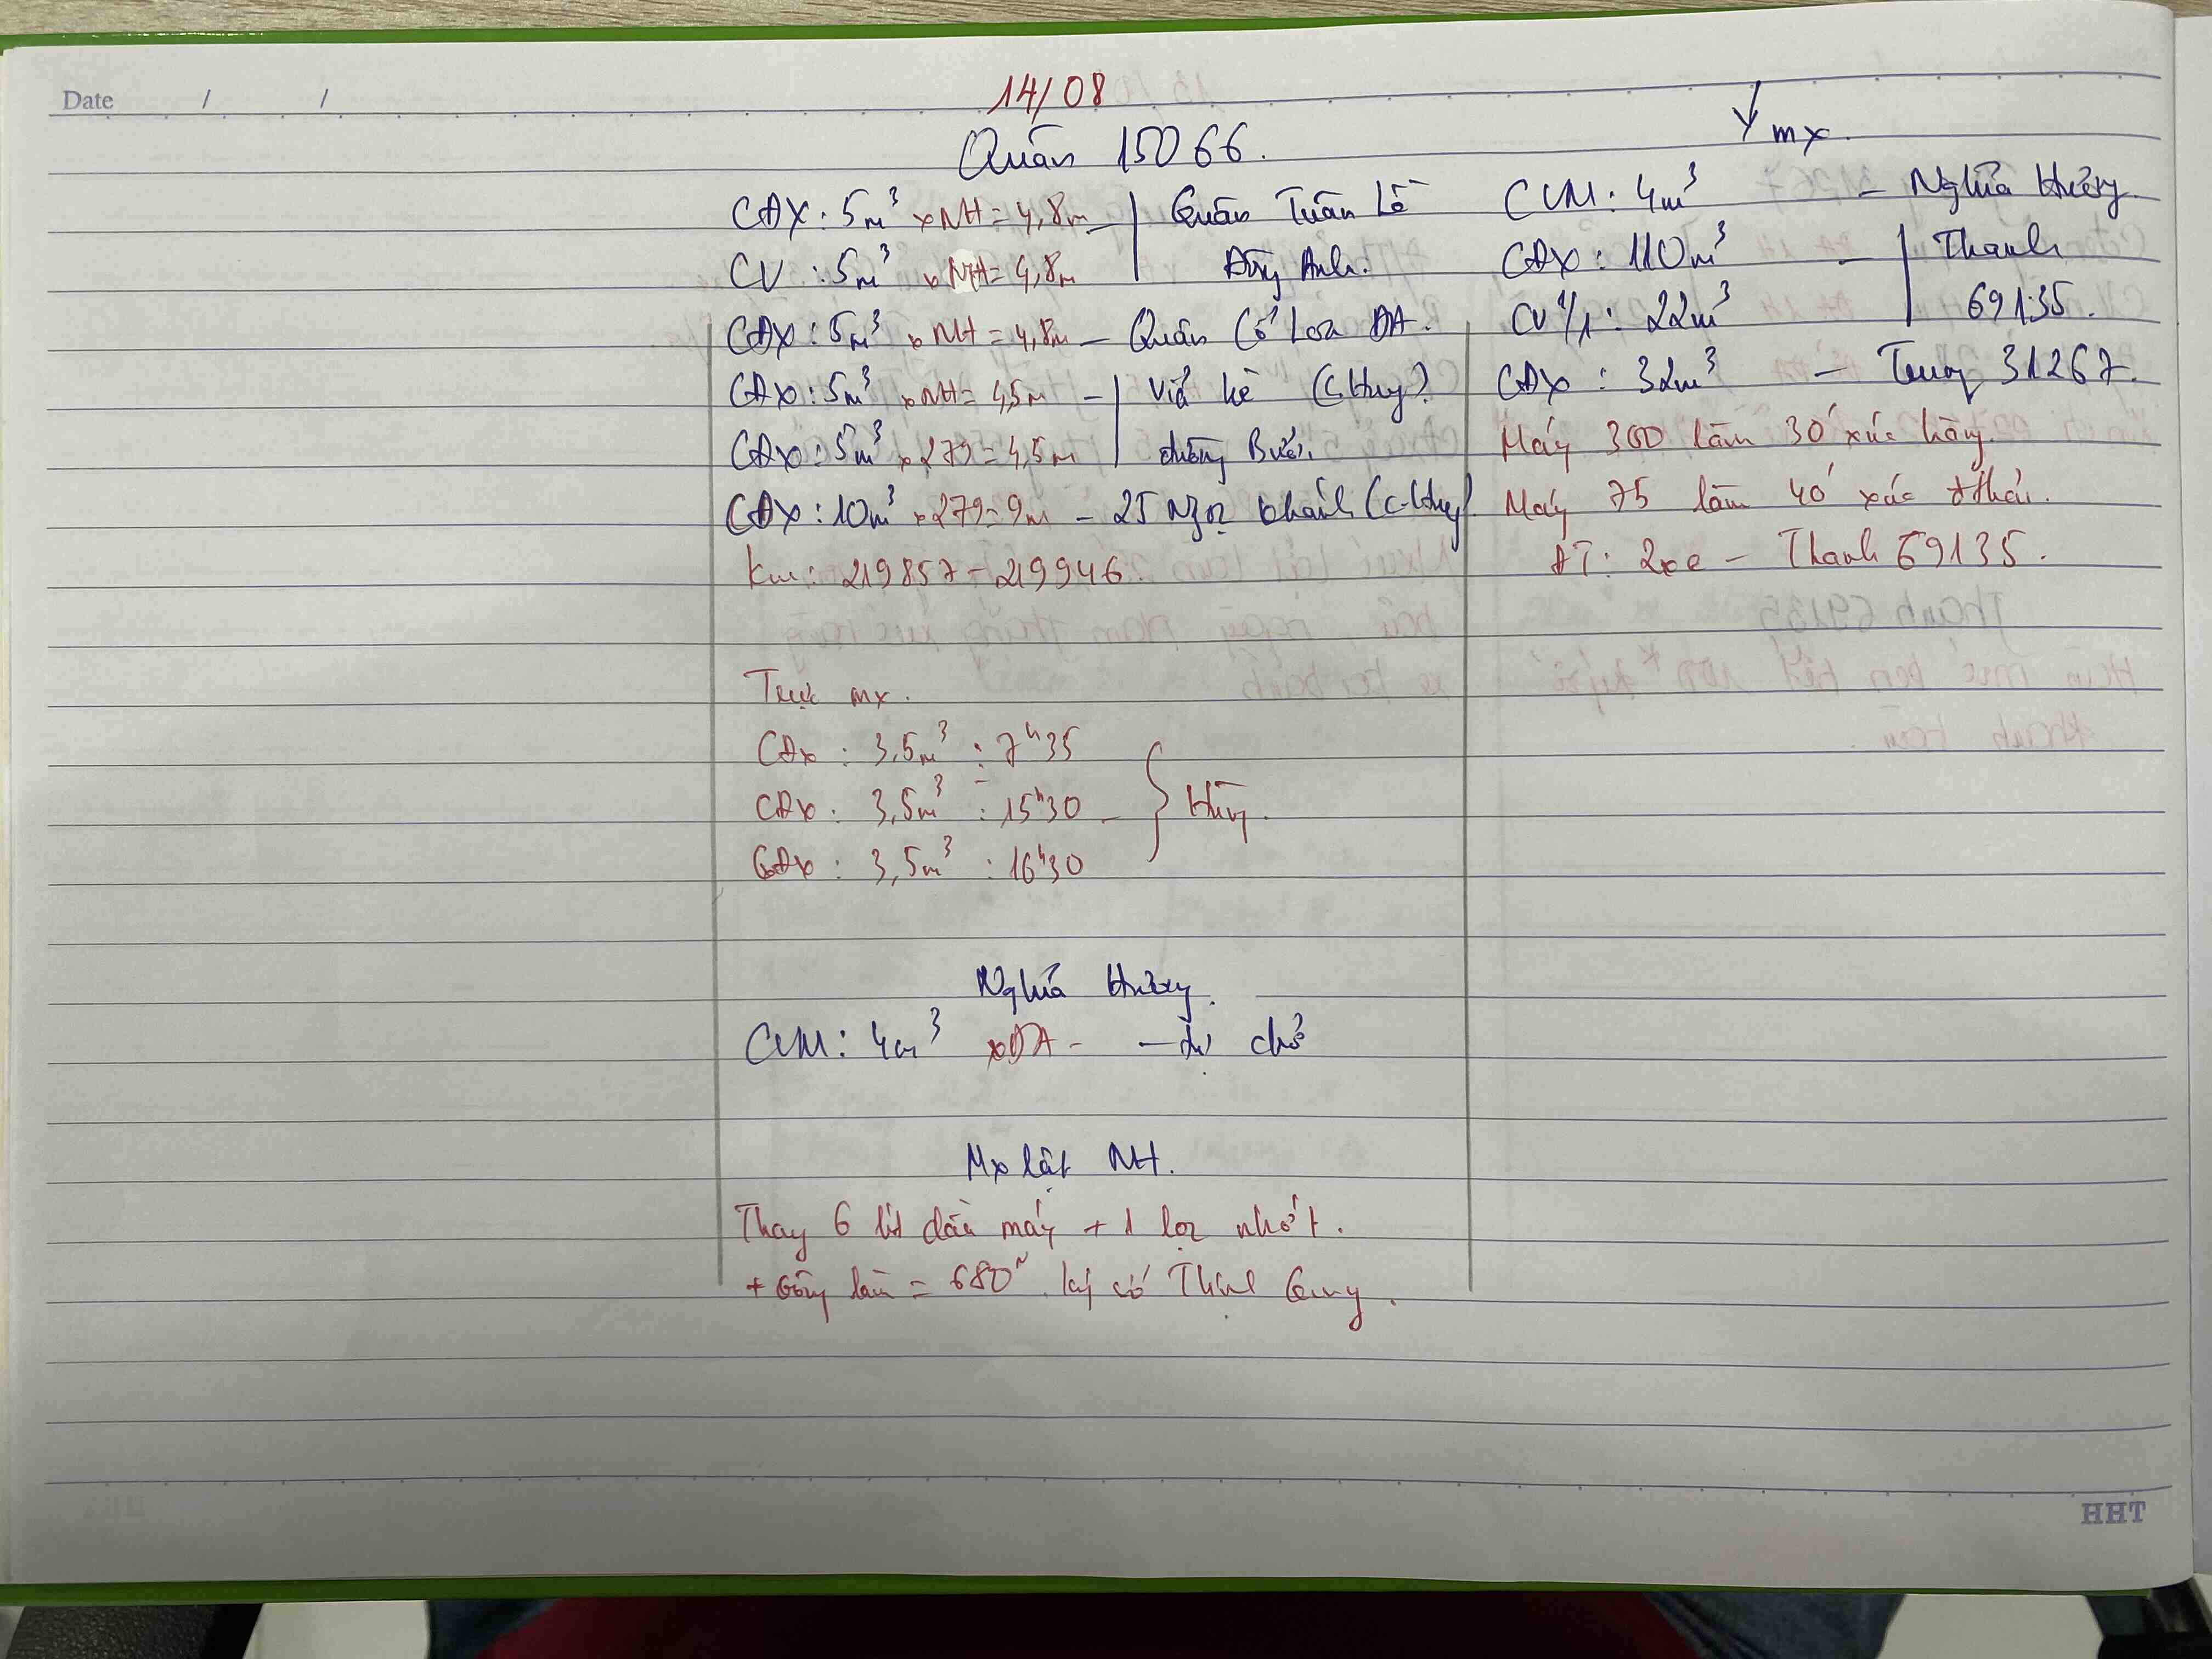 Date / /
14/08
Quân 15066.
CĐX: 5m³ xNH = 4,8m
Quân Tuân Lề
CV : 5m³ xNH = 4,8m
Đông Anh.
CĐX: 5m³ xNH = 4,8m – Quân Cổ Loa ĐA.
CĐX: 5m³ xNH = 4,5m –
Vỉa hè (C.Huy)
CĐX: 5m³ x279 = 4,5m
đường Bưởi.
CĐX: 10m³ x279 = 9m – 25 Ngọc Khánh (C.Huy)
Km: 219857 – 219946.
Trực mx.
CĐX : 3,5m³ : 7h35
CĐX : 3,5m³ : 15h30 –
Hùng.
CĐX : 3,5m³ : 16h30
Nghĩa Hường.
CVM: 4m³ xĐA – – đi chở
Mx lật NH.
Thay 6 lít dầu máy + 1 lọc nhớt.
+ công làm = 680ⁿ ký sổ Thịnh
mx.
CVM: 4m³ – Nghĩa Hường
CĐX: 110m³ –
Thanh
CV 4/1: 22m³
69135.
CĐX : 32m³ – 31267.
Máy 300 làm 30' xúc hàng.
Máy 75 làm 40' xúc
ĐT: 2xe – Thanh 69135.
HHT